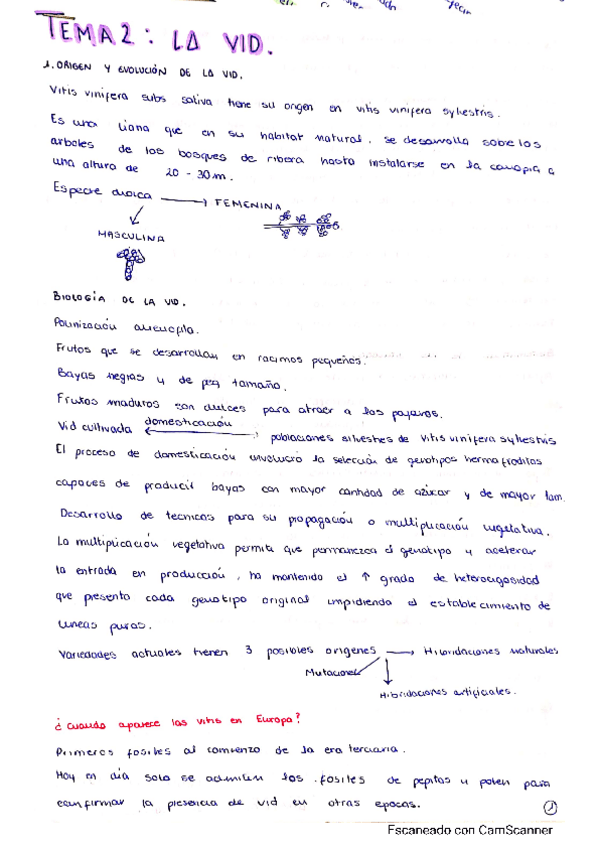 TEMA 2: LA VID.
1. ORIGEN Y EVOLUCIÓN DE LA VID.
Vitis vinifera subs sativa tiene su origen en vitis vinifera sylvestris.
Es una liana que en su habitat natural, se desarrolla sobre los
arboles de los bosques de ribera hasta instalarse en la canopia a
una altura de 20 - 30 m.
Especie dioica → FEMENINA
MASCULINA
BIOLOGÍA DE LA VID.
Polinización anemofila.
Frutos que se desarrollan en racimos pequeños.
Bayas negras y de peq tamaño.
Frutos maduros son dulces para atraer a los pajaros.
Vid cultivada ← domesticación poblaciones silvestres de vitis vinifera sylvestris
El proceso de domesticación involucró la selección de genotipos hermafroditas
capaces de producir bayas con mayor cantidad de azúcar y de mayor tam.
Desarrollo de tecnicas para su propagación o multiplicación vegetativa.
La multiplicación vegetativa permite que permanezca el genotipo y acelerar
la entrada en producción, ha mantenido el ↑ grado de heterocigosidad
que presenta cada genotipo original impidiendo el establecimiento de
lineas puras.
Variedades actuales tienen 3 posibles origenes → Hibridaciones naturales
Mutaciones
Hibridaciones artificiales.
¿Cuando aparece las vitis en Europa?
Primeros fosiles al comienzo de la era terciaria.
Hoy en dia solo se admiten los fosiles de pepitas y polen para
confirmar la presencia de vid en otras epocas.
1
Escaneado con CamScanner